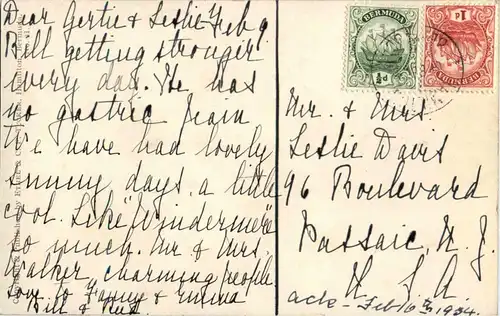 Dear Gertie & Leslie - Feb 9
Bill getting stronger
every day. He has
no gastric pain
We have had lovely
sunny days, a little
cool. Like "Windermere"
so much. Mr & Mrs.
Walker charming people.
Love to Fanny & Emma
Bill &
BERMUDA
½d
BERMUDA
1d
Mr. & Mrs.
Leslie Davis
96 Boulevard
Passaic N. J.
U. S. A.
ack - Feb 16th 1934.